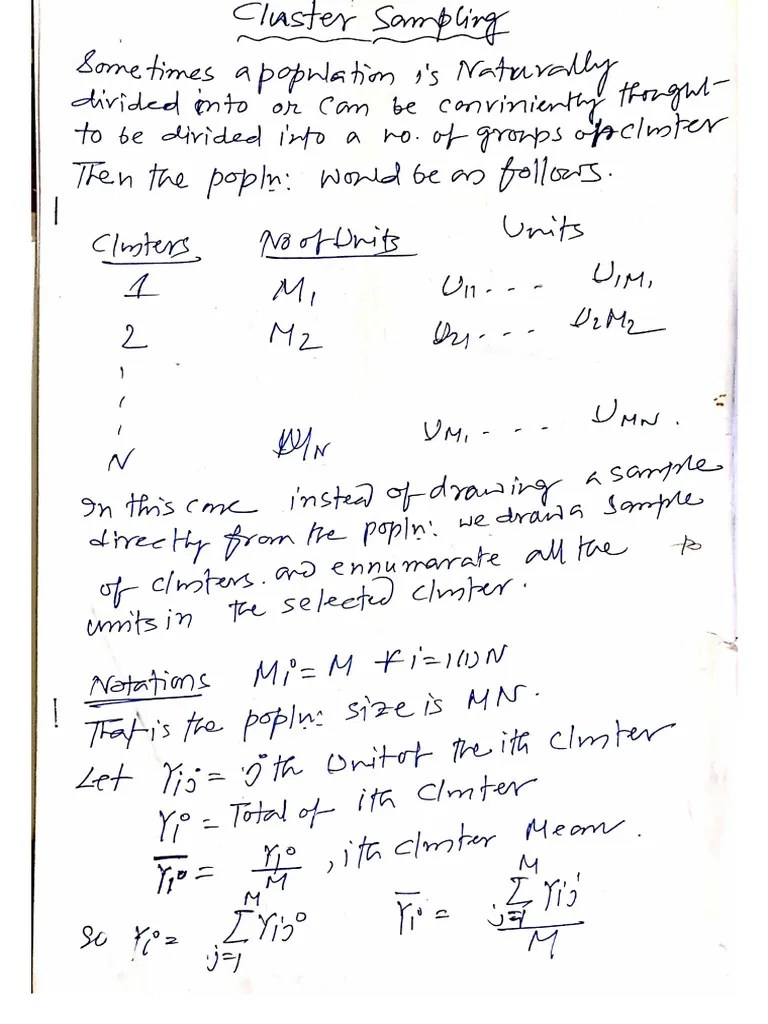 Cluster Sampling
Sometimes a population is Naturally
divided into or can be conviniently thought
to be divided into a no. of groups of cluster
Then the popln: would be as follows.
Clusters No of Units Units
1 M₁ U₁₁ - - - U₁M₁
2 M₂ U₂₁ - - - U₂M₂
N M_N U_M₁ - - - U_MN.
In this case instead of drawing a sample
directly from the popln: we draw a sample
of clusters. and ennumarate all the
units in the selected cluster.
Notations Mi = M ∀ i = 1(1)N
That is the popln: size is MN.
Let Yij = jth Unit of the ith cluster
Yi = Total of ith cluster
Y̅i = Yi/M, ith cluster Mean.
So Yi = Σ_{j=1}^{M} Yij Y̅i = Σ_{j=1}^{M} Yij / M